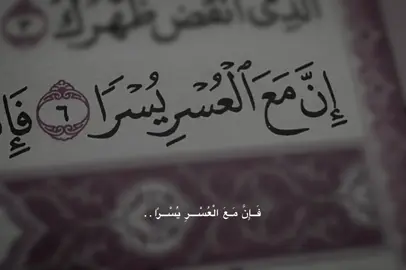 الَّذِي أَنْقَضَ ظَهْرَكَ ٣
إِنَّ مَعَ الْعُسْرِ يُسْرًا ٦ فَإِ
فَـإِنَّ مَـعَ الْعُسْـرِ يُسْـرًا..